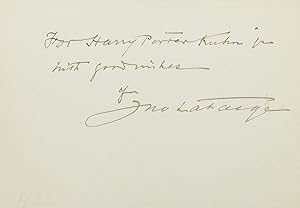 For Harry Porter Kuhn Jr
with good wishes
of
Jno La Farge